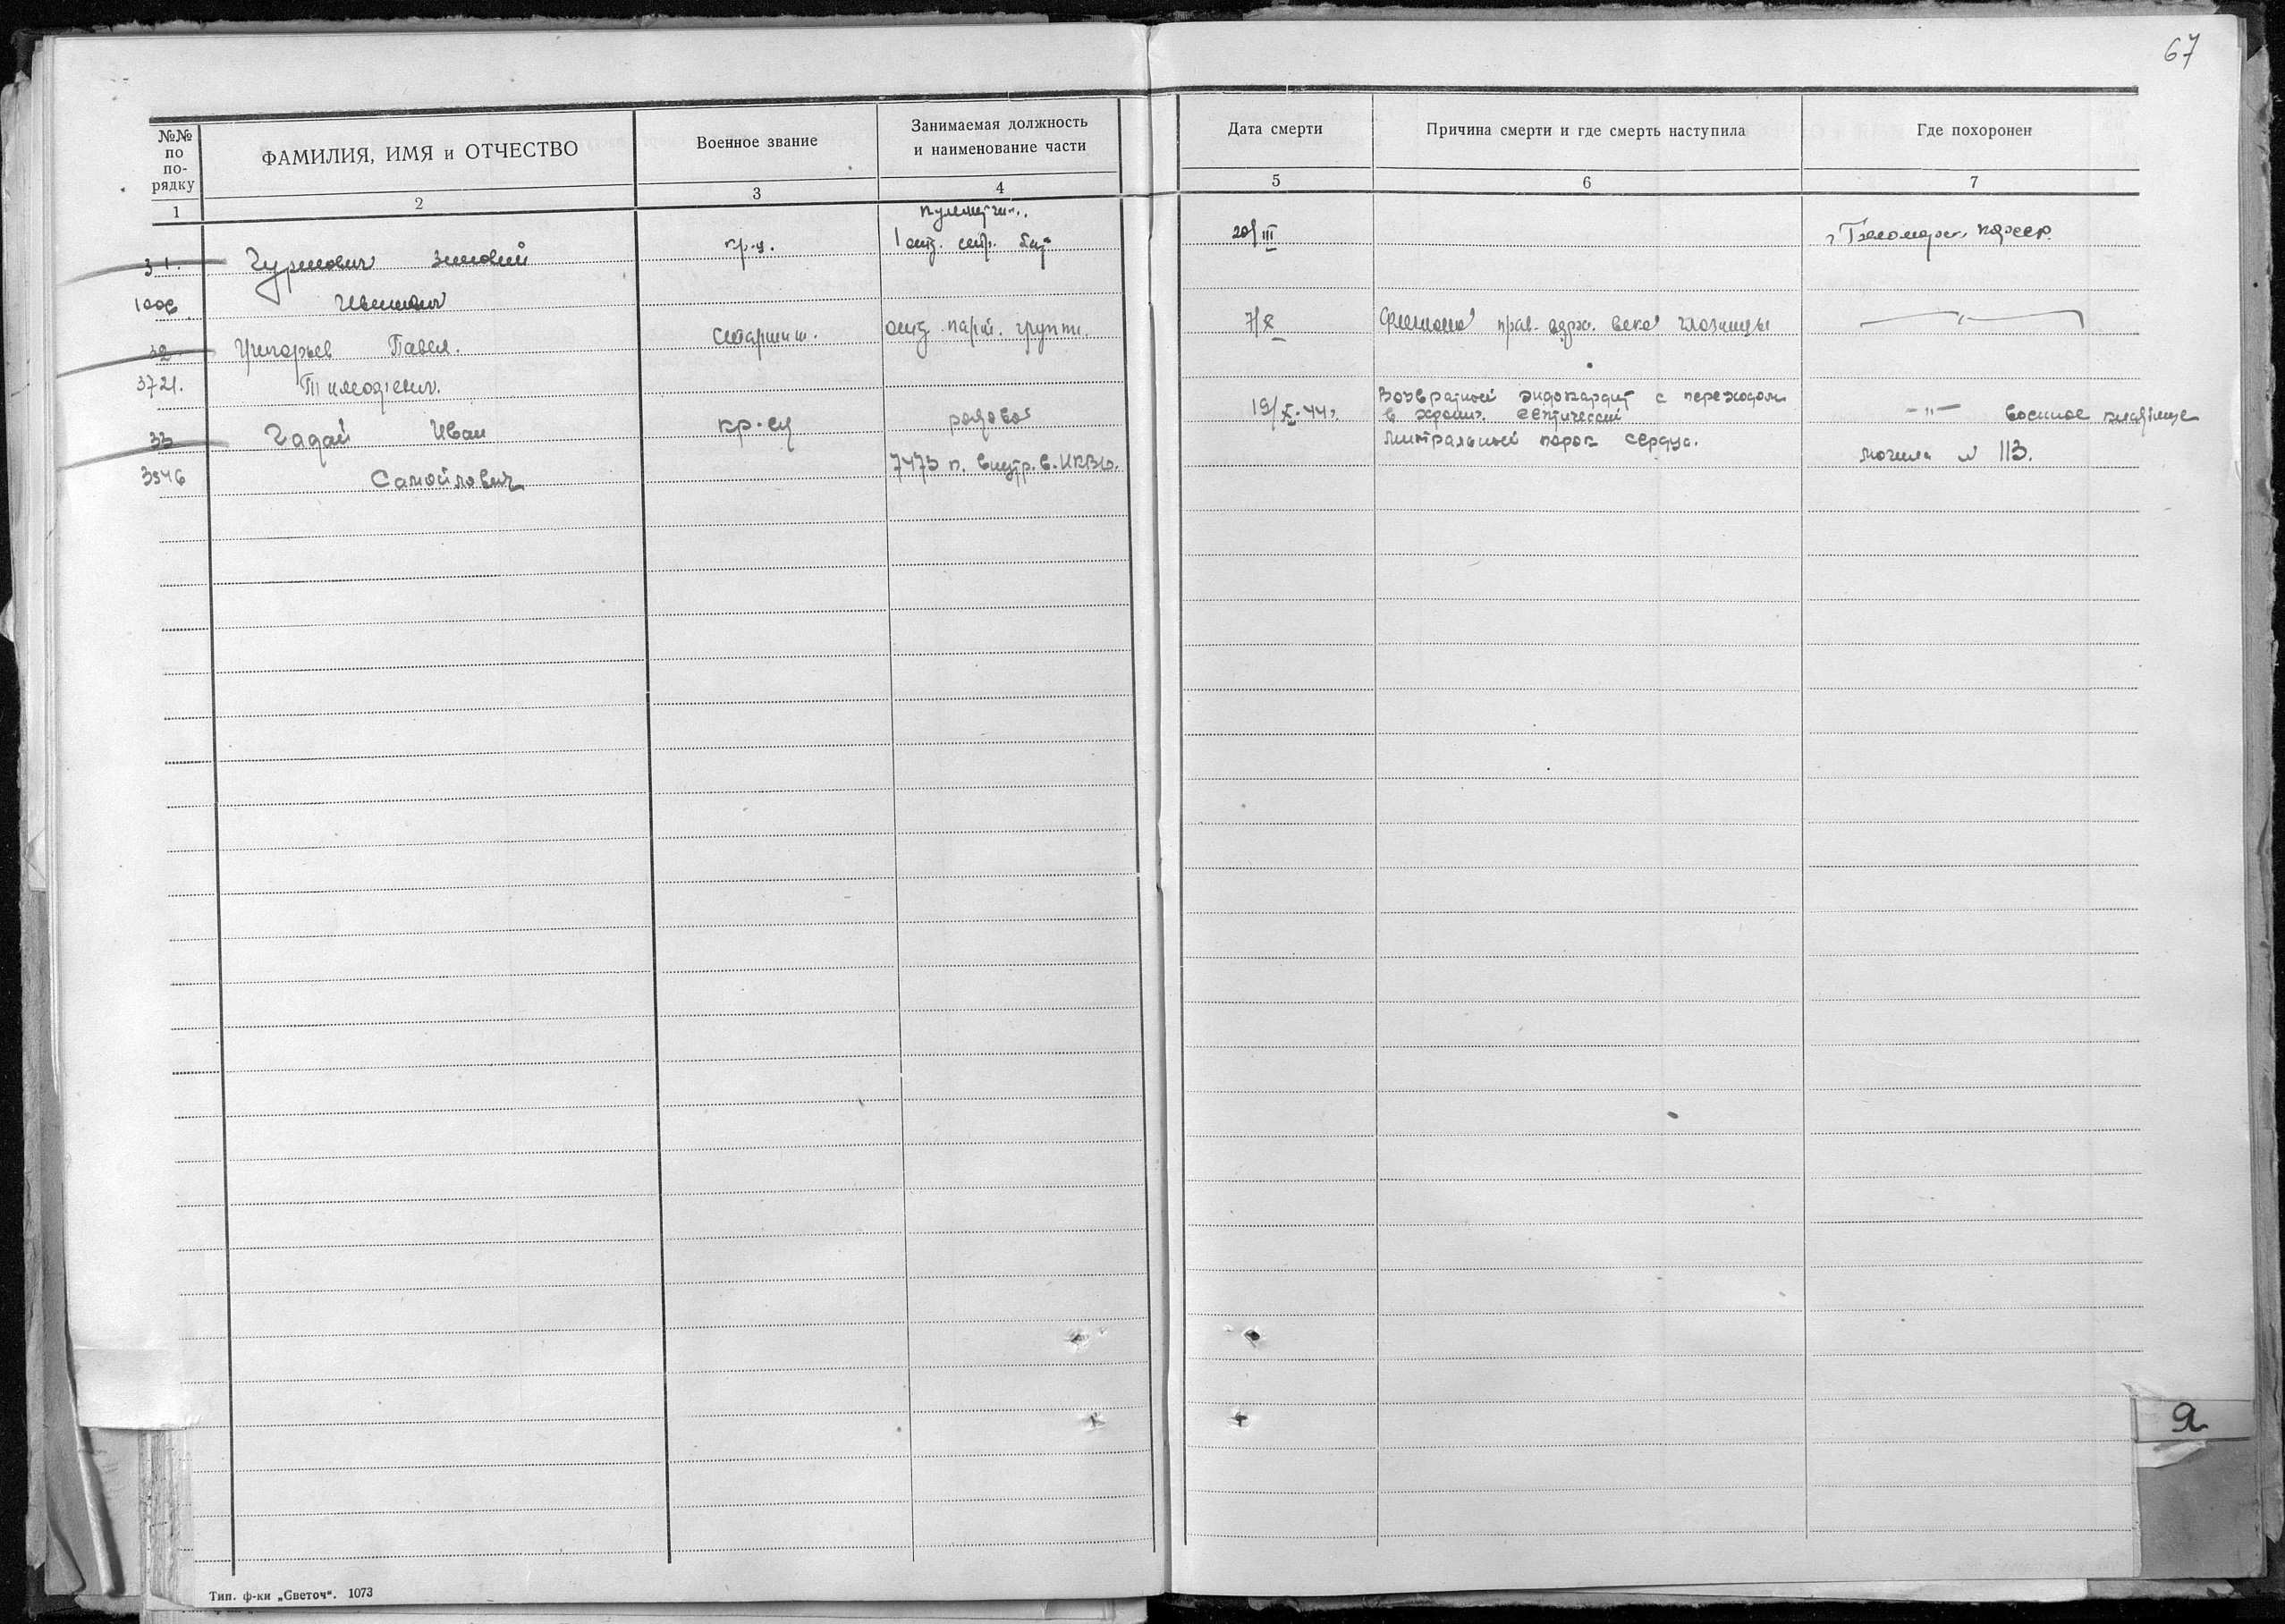 67
№№ по по- рядку
ФАМИЛИЯ, ИМЯ и ОТЧЕСТВО
Военное звание
Занимаемая должность
и наименование части
Дата смерти
Причина смерти и где смерть наступила
Где похоронен
1 2 3 4 5 6 7
пулеметчик.
31. Гурнович Зиновий кр-ц. 1 отд. стр. бат 20/III
1006 Иванович
32 Григорьев Павел. Старшин. отд. парт. группы. 7/X Флегмона прав. верх. века глазницы
3721. Тимофеевич.
33 Гадай Иван кр-ец рядовой 19/X-44г. Возвратный эндокардит с переходом
в хронич. септический —"— военное кладбище
митральный порок сердца.
3546 Самойлович 7473 п. внутр. в. НКВД. могила № 113.
Я
Тип. ф-ки „Светоч“. 1073